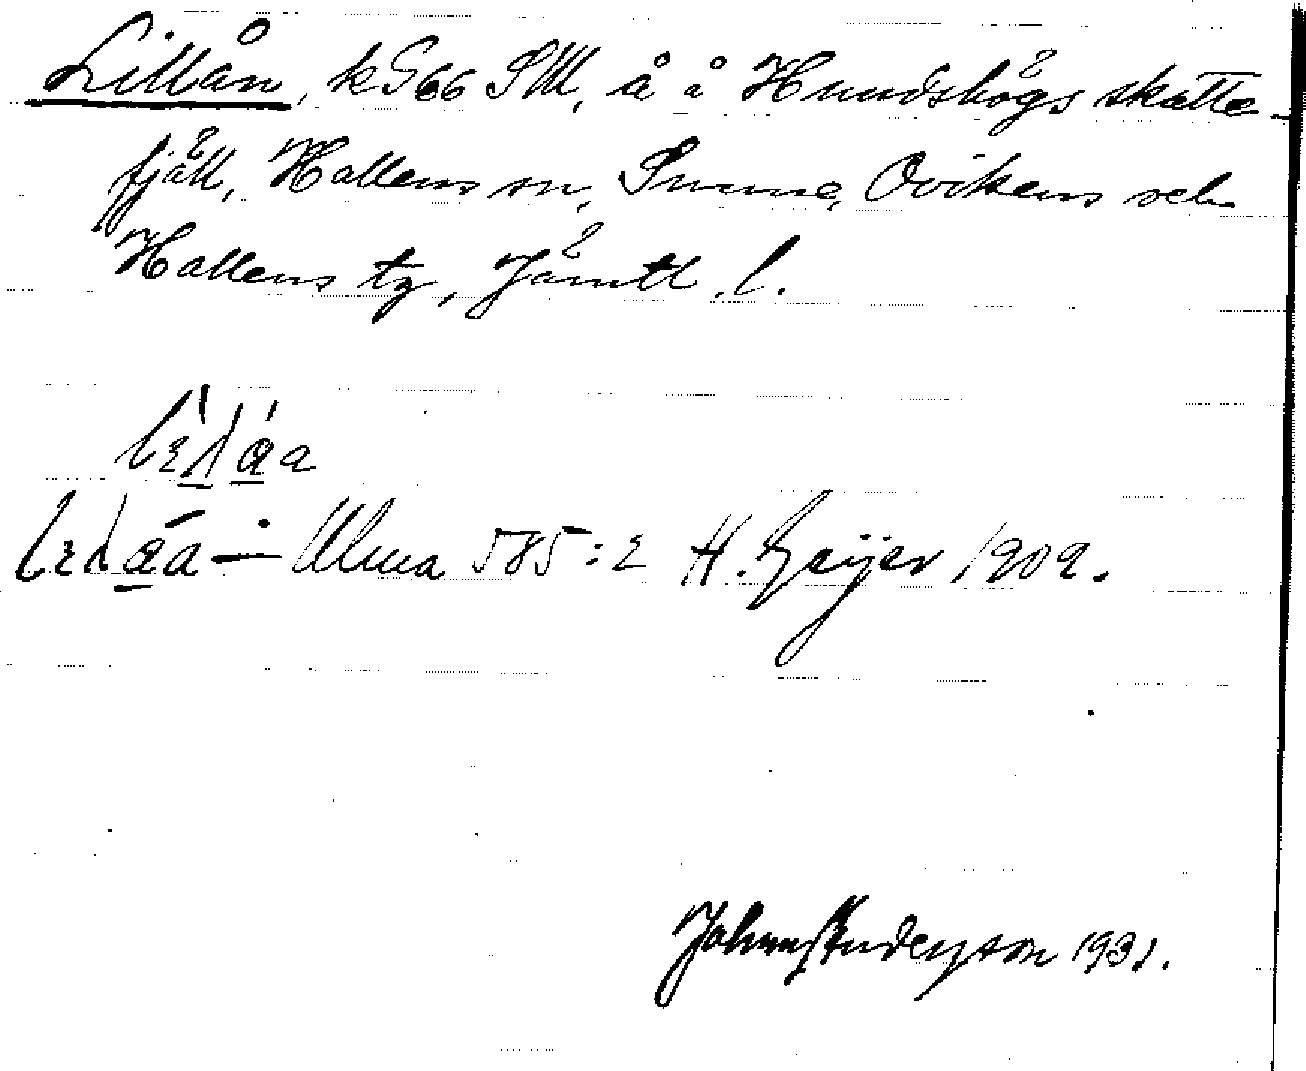 Lillån, k566 SV, å å Hundshögs skatte-
fjäll, Hallens sn, Sunne, Ovikens och
Hallens tg, Jämtl. l.
Ulma 585:2 H. Geijer 1909.
Johannes Anderson 1931.